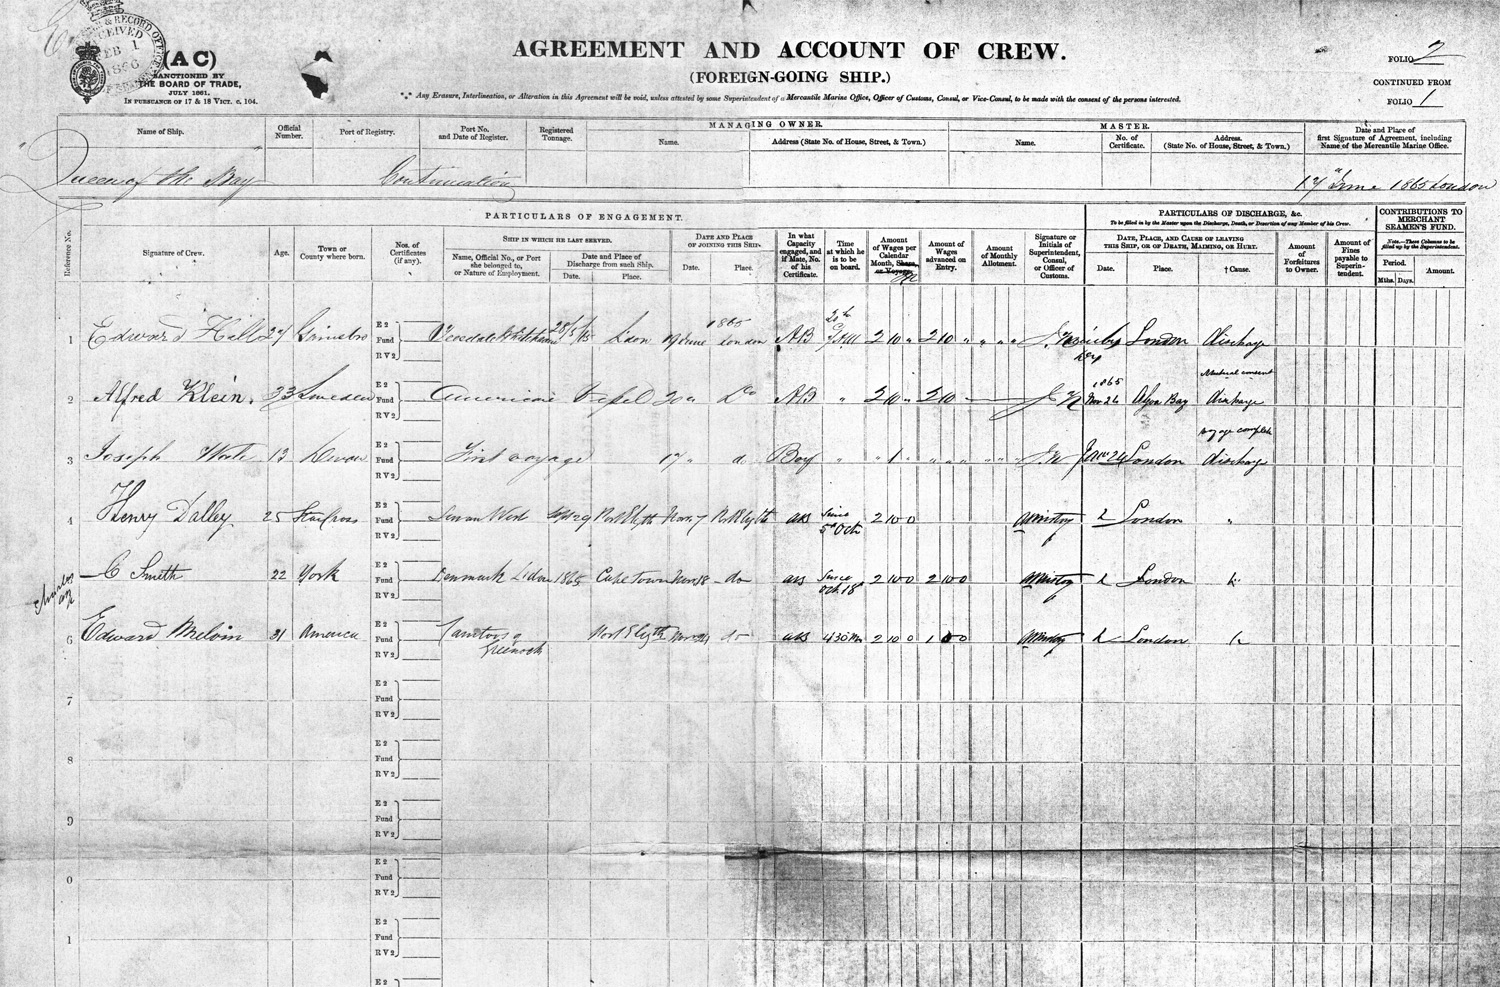 & RECORD OFFICE
RECEIVED
FEB 1
1866
(AC)
SANCTIONED BY
THE BOARD OF TRADE,
JULY 1861.
IN PURSUANCE OF 17 & 18 VICT. c. 104.
AGREEMENT AND ACCOUNT OF CREW.
(FOREIGN-GOING SHIP.)
*** Any Erasure, Interlineation, or Alteration in this Agreement will be void, unless attested by some Superintendent of a Mercantile Marine Office, Officer of Customs, Consul, or Vice-Consul, to be made with the consent of the persons interested.
FOLIO 2
CONTINUED FROM
FOLIO 1
Name of Ship. Official Number. Port of Registry. Port No. and Date of Register. Registered Tonnage.
MANAGING OWNER.
Name. Address (State No. of House, Street, & Town.)
MASTER.
Name. No. of Certificate. Address. (State No. of House, Street, & Town.)
Date and Place of first Signature of Agreement, including Name of the Mercantile Marine Office.
"Queen of the Bay" Continuation 17 June 1865 London
Reference No.
PARTICULARS OF ENGAGEMENT.
Signature of Crew. Age. Town or County where born. Nos. of Certificates (if any).
SHIP IN WHICH HE LAST SERVED.
Name, Official No., or Port she belonged to, or Nature of Employment.
Date and Place of Discharge from such Ship.
Date. Place.
DATE AND PLACE OF JOINING THIS SHIP.
Date. Place.
In what Capacity engaged, and if Mate, No. of his Certificate.
Time at which he is to be on board.
Amount of Wages per Calendar Month, Share, or Voyage.
Amount of Wages advanced on Entry.
Amount of Monthly Allotment.
Signature or Initials of Superintendent, Consul, or Officer of Customs.
PARTICULARS OF DISCHARGE, &c.
To be filled in by the Master upon the Discharge, Death, or Desertion of any Member of his Crew.
DATE, PLACE, AND CAUSE OF LEAVING THIS SHIP, OR OF DEATH, MAIMING, OR HURT.
Date. Place. † Cause.
Amount of Forfeitures to Owner.
Amount of Fines payable to Superintendent.
CONTRIBUTIONS TO MERCHANT SEAMEN'S FUND.
Note.—These Columns to be filled up by the Superintendent.
Period. Mths. Days. Amount.
1 Edward Hill 27 E2 Fund RV2 28/5/65 19 June 1865 London AB 20th 2 10 " 2 10 " " " " London discharge
2 Alfred Klein. 33 Sweden E2 Fund RV2 American 20 " Do AB " 2 10 " 2 10 J N 1865 Nov 26 Algoa Bay discharge Mutual consent
3 Joseph 13 Devon E2 Fund RV2 First voyage 17 " do Boy " " 1 " " " " " " " J N Jany 24 London discharge voyage complete
4 Henry Dalley 25 E2 Fund RV2 Sept 29 Port Elizth Nov. 7 Port Elizth AB Since 5th Octr 2 10 0 London "
5 C Smith 22 York E2 Fund RV2 Denmark 1865 Cape Town Nov 18 do AB Since Oct 18 2 10 0 2 10 0 London
6 Edward Melvin 31 America E2 Fund RV2 Greenock Port Elizth Nov 24 do AB 4 30 2 10 0 1 0 0 London
7 E2 Fund RV2
8 E2 Fund RV2
9 E2 Fund RV2
0 E2 Fund RV2
1 E2 Fund RV2
E2